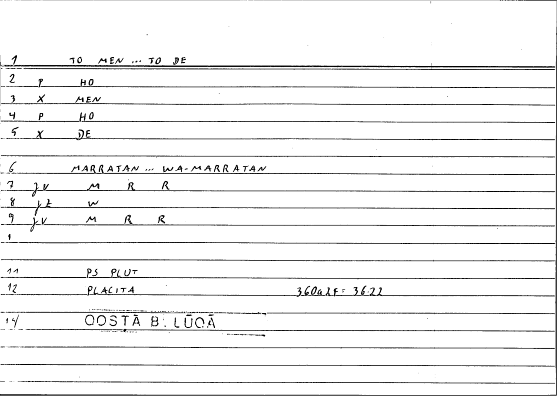 1 TO MEN ... TO DE
2 P HO
3 X MEN
4 P HO
5 X DE
6 MARRATAN ... WA-MARRATAN
7 jv M R R
8 jz W
9 jv M R R
1
11 PS PLUT
12 PLACITA 360a2f = 36.22
14 QOSTĀ B. LŪQĀ